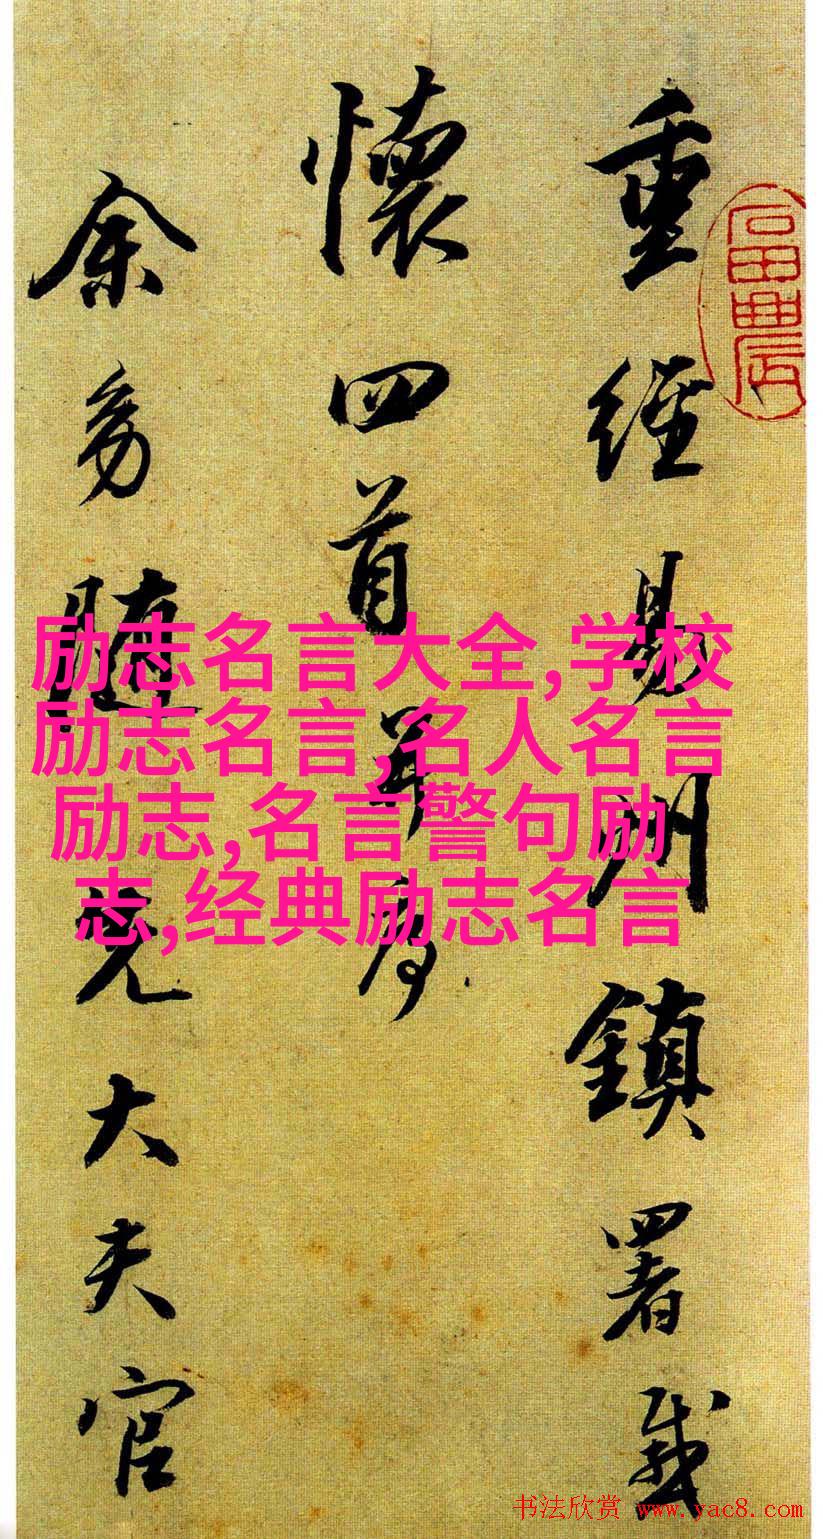 重經易州鎮署感
懷四首并序
余幼隨先大夫官
励志名言大全,学校
励志名言,名人名言
励志,名言警句励
志,经典励志名言
书法欣赏 www.yac8.com